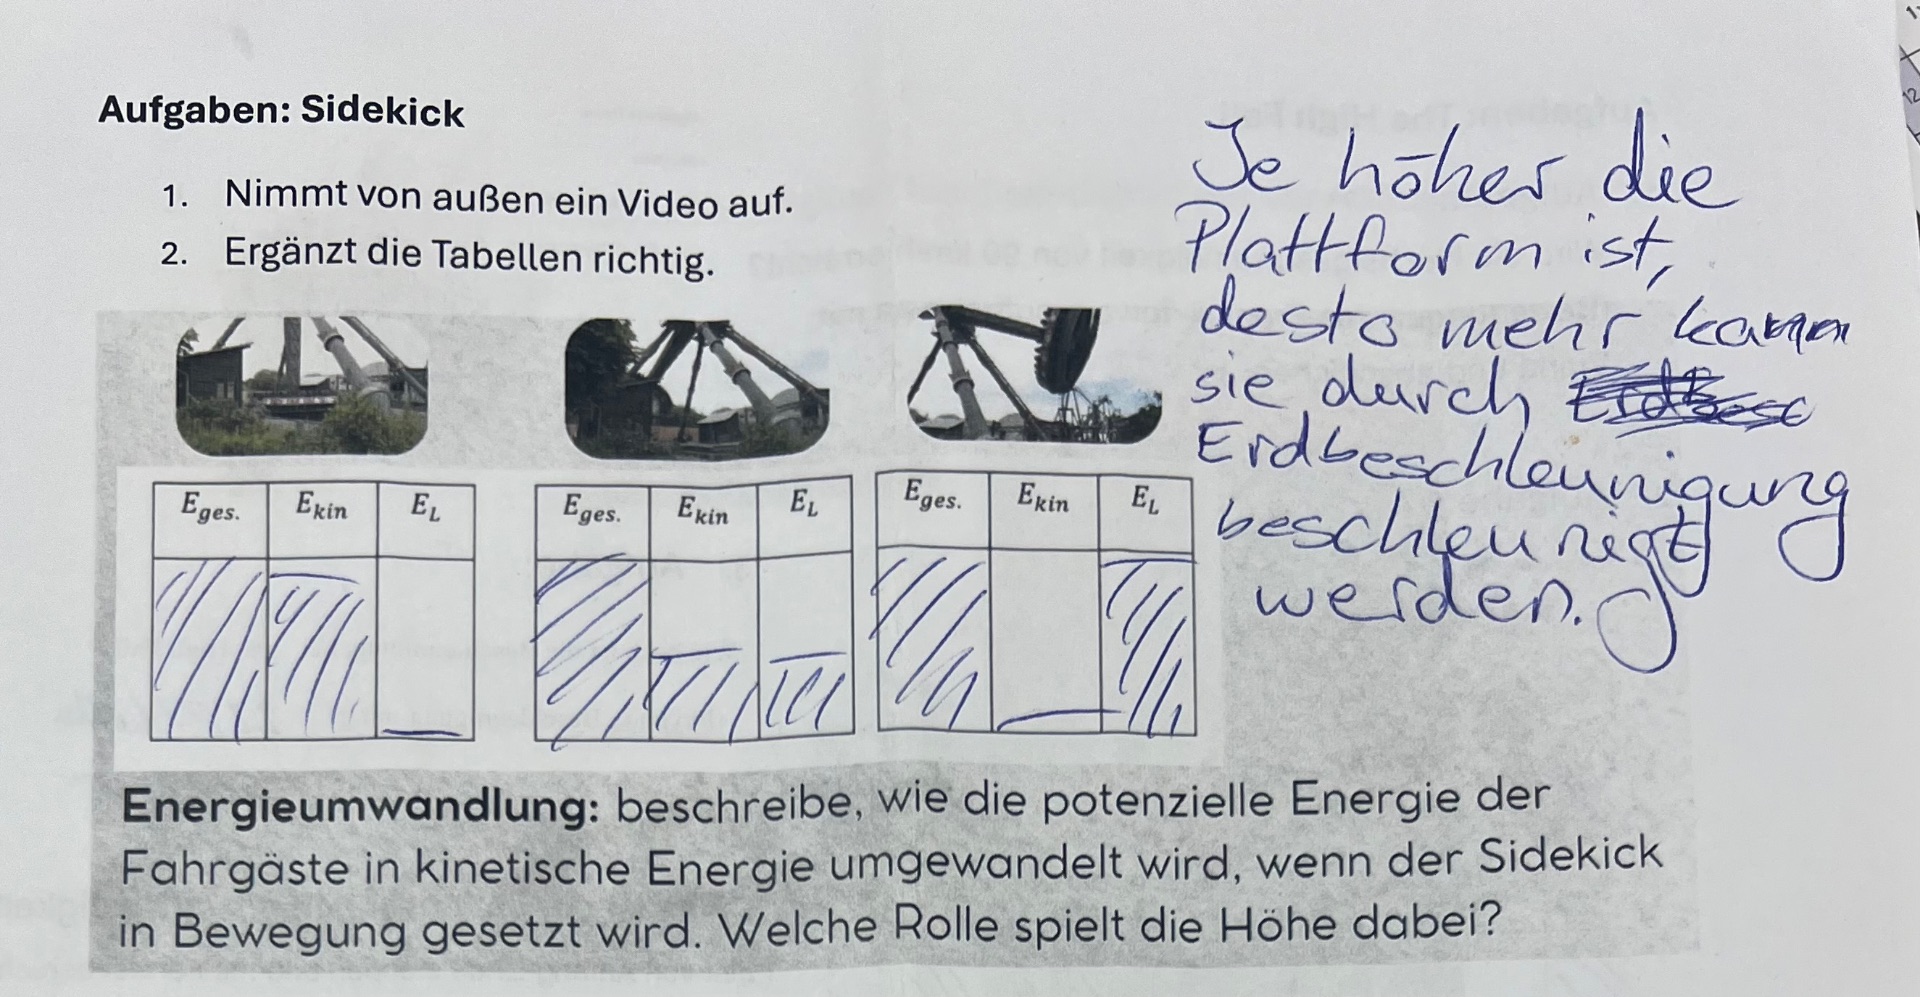 Aufgaben: Sidekick
1. Nimmt von außen ein Video auf.
2. Ergänzt die Tabellen richtig.
E_ges. E_kin E_L
E_ges. E_kin E_L
E_ges. E_kin E_L
Energieumwandlung: beschreibe, wie die potenzielle Energie der
Fahrgäste in kinetische Energie umgewandelt wird, wenn der Sidekick
in Bewegung gesetzt wird. Welche Rolle spielt die Höhe dabei?
Je höher die
Plattform ist,
desto mehr kann
sie durch
Erdbeschleunigung
beschleunigt
werden.